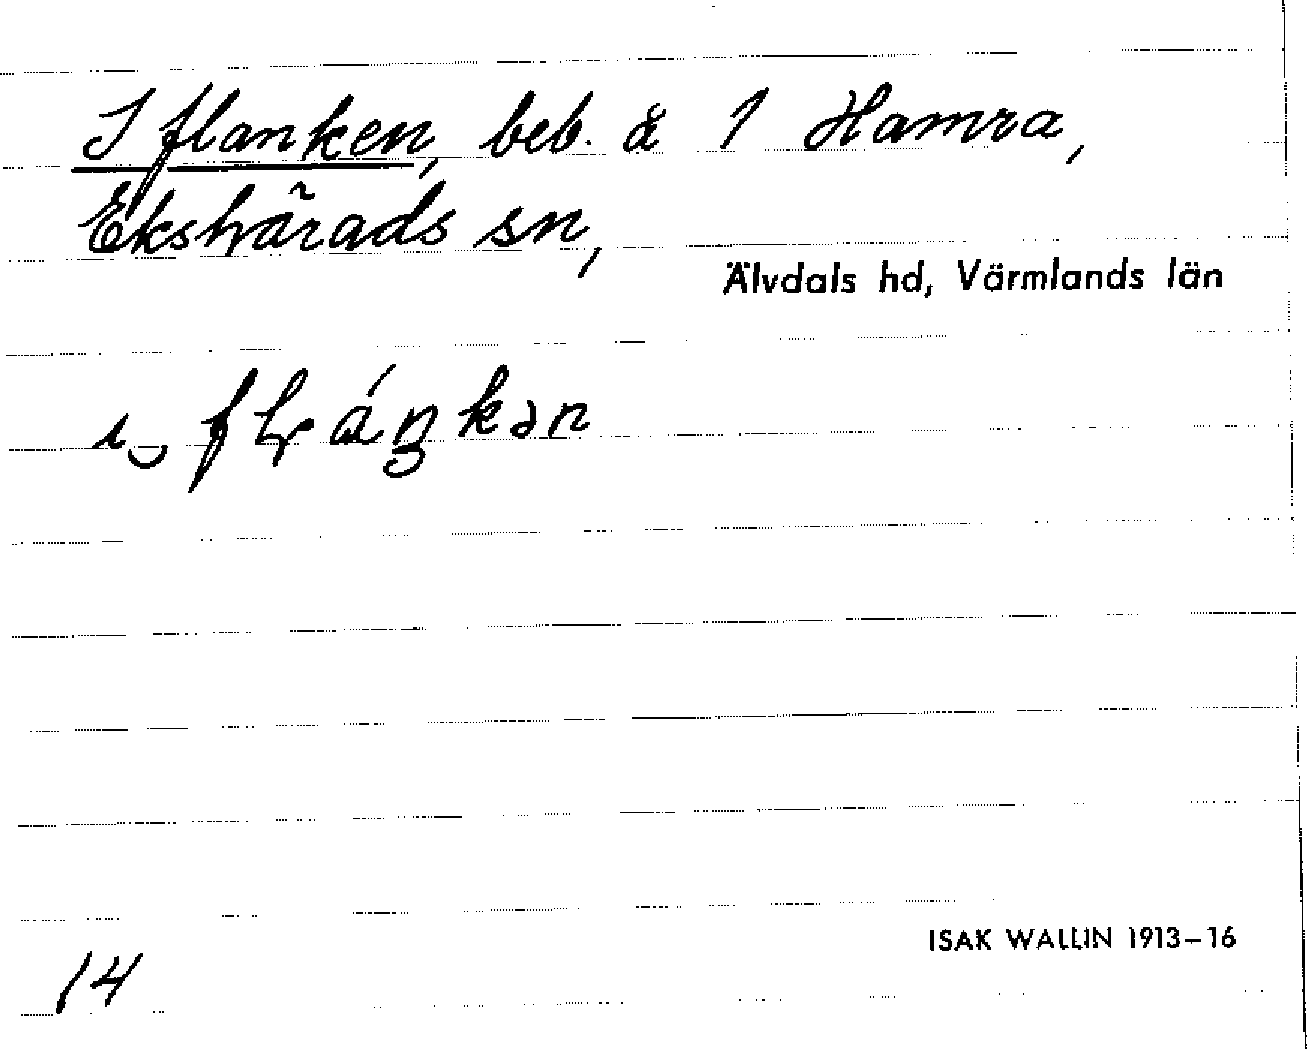 I flanken, beb. å 1 Hamra,
Ekshärads sn,
Älvdals hd, Värmlands län
ı‿flⱼáŋkən
ISAK WALLIN 1913-16
14